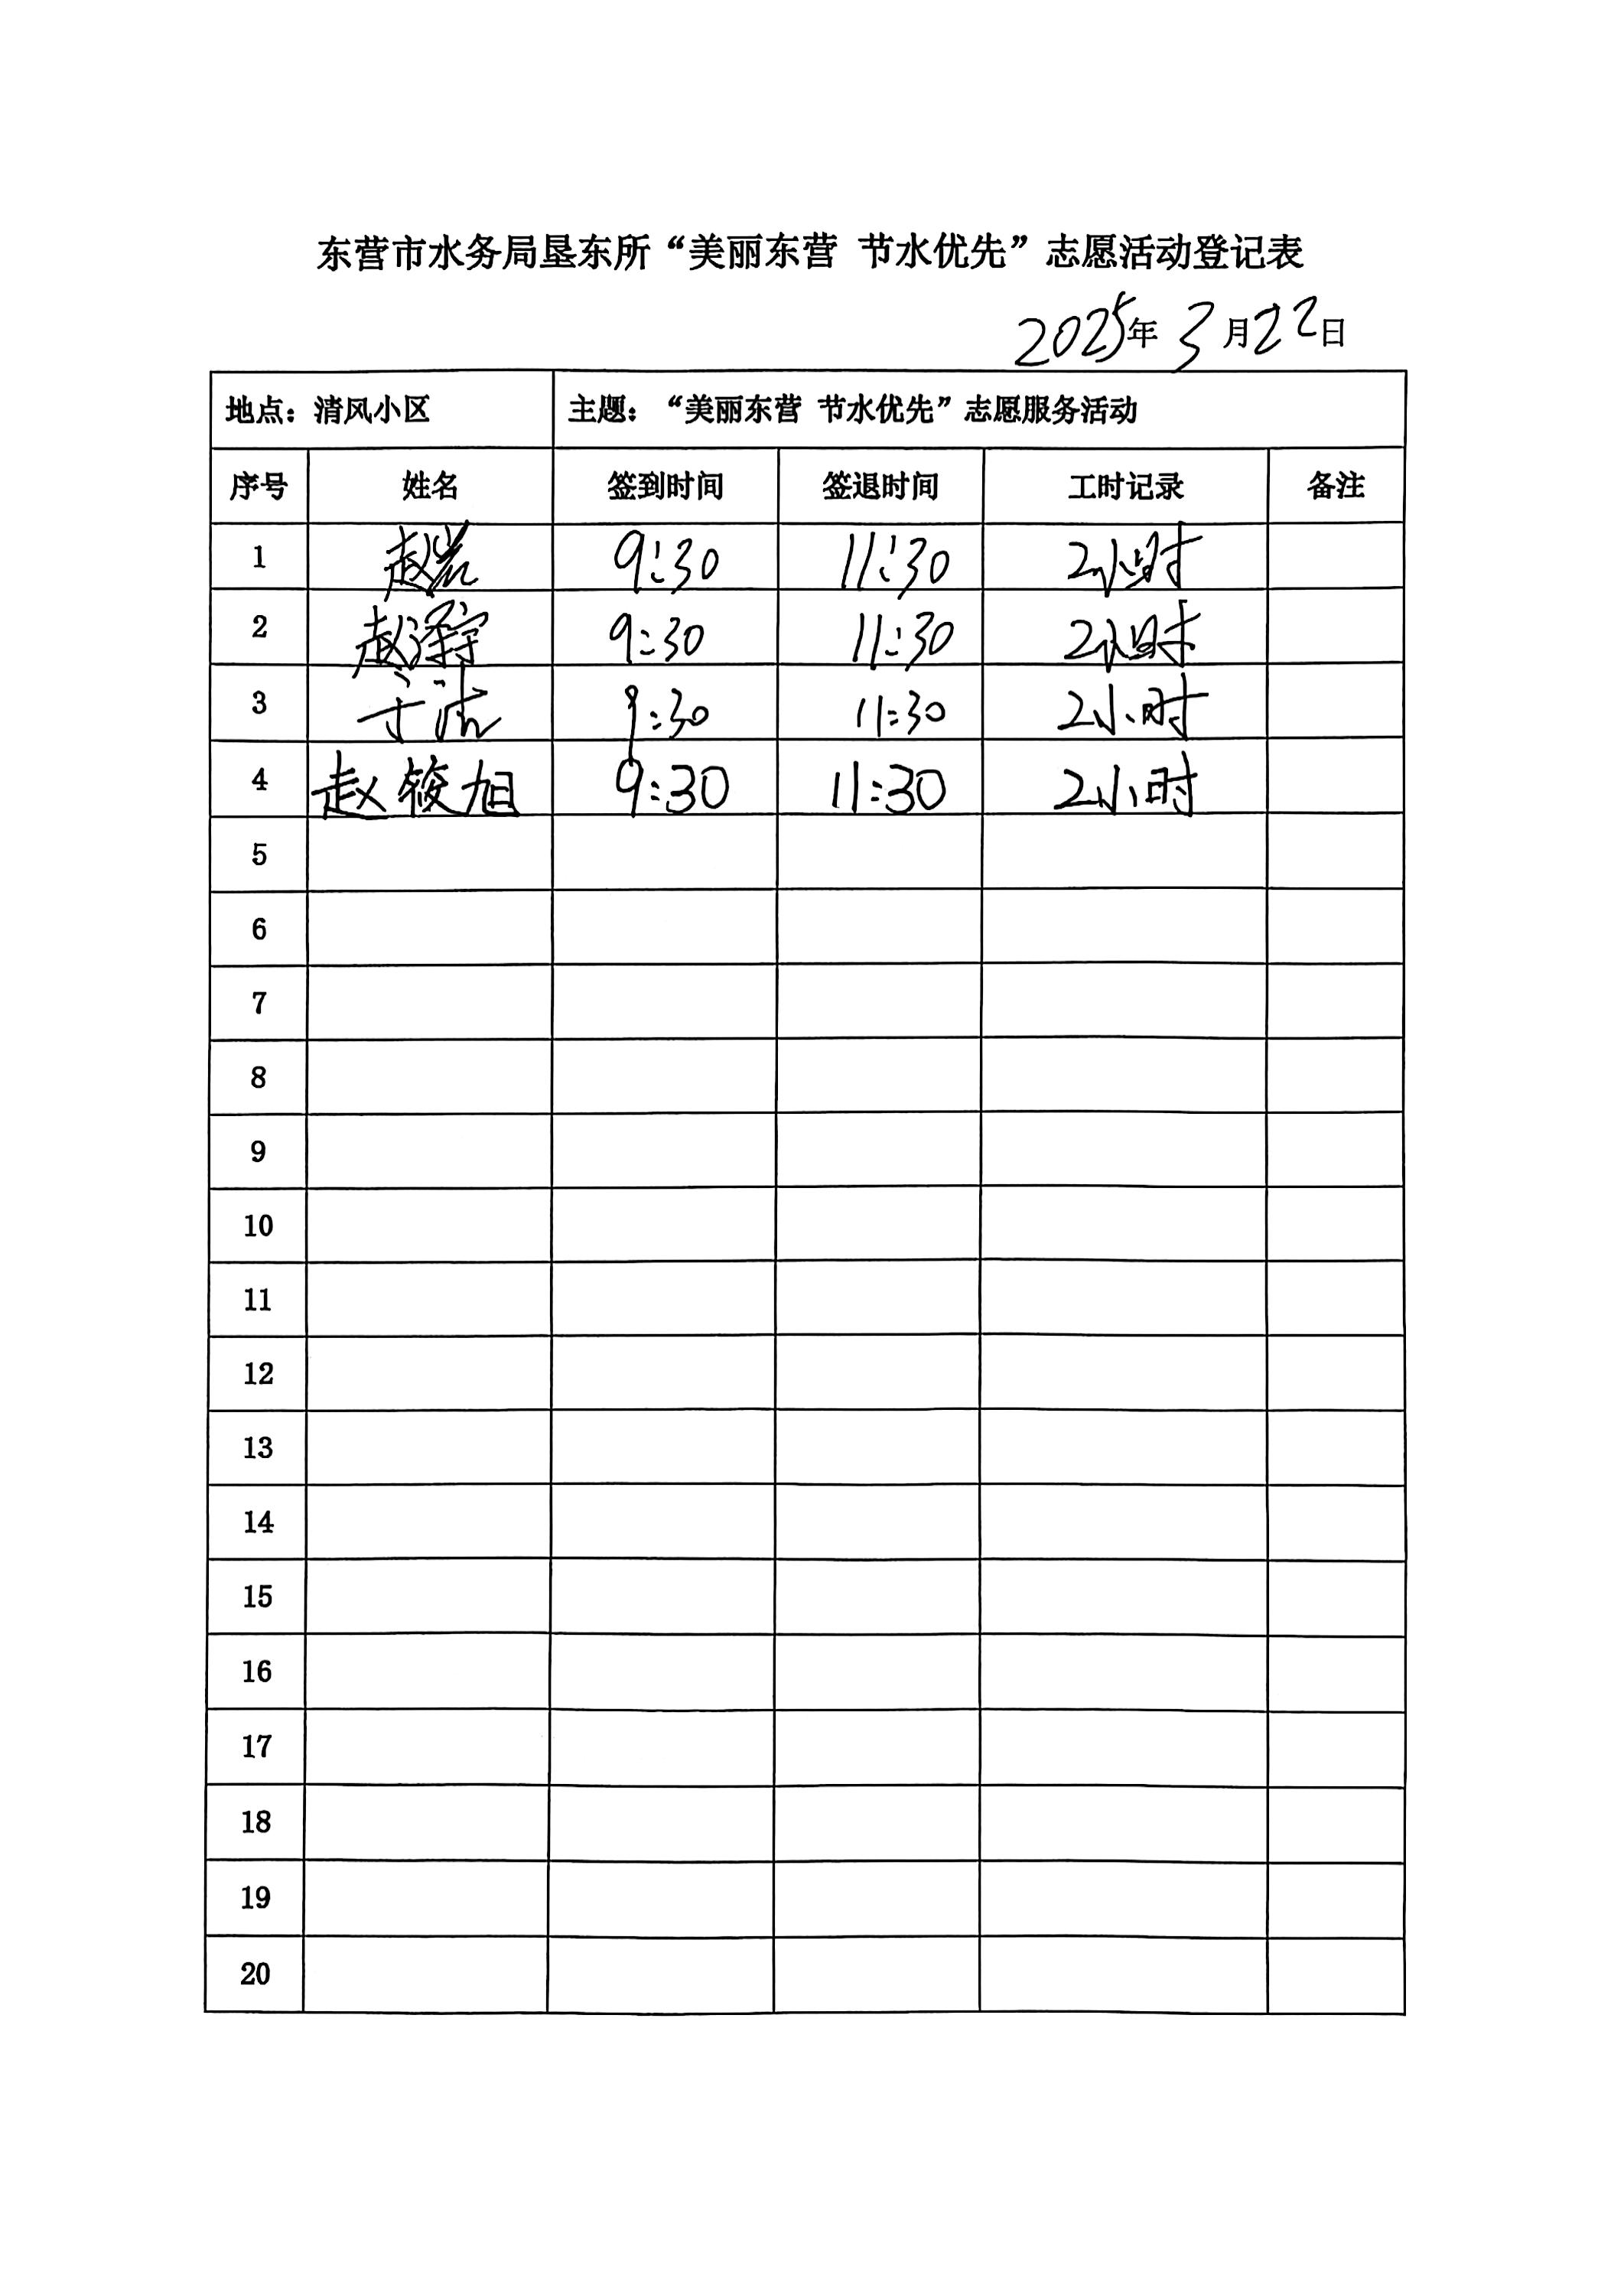 东营市水务局垦东所“美丽东营 节水优先”志愿活动登记表
2025年3月22日
地点：清风小区 主题：“美丽东营 节水优先”志愿服务活动
序号 姓名 签到时间 签退时间 工时记录 备注
1 赵 9:30 11:30 2小时
2 赵泽宇 9:30 11:30 2小时
3 于 9:30 11:30 2小时
4 赵筱旭 9:30 11:30 2小时
5
6
7
8
9
10
11
12
13
14
15
16
17
18
19
20